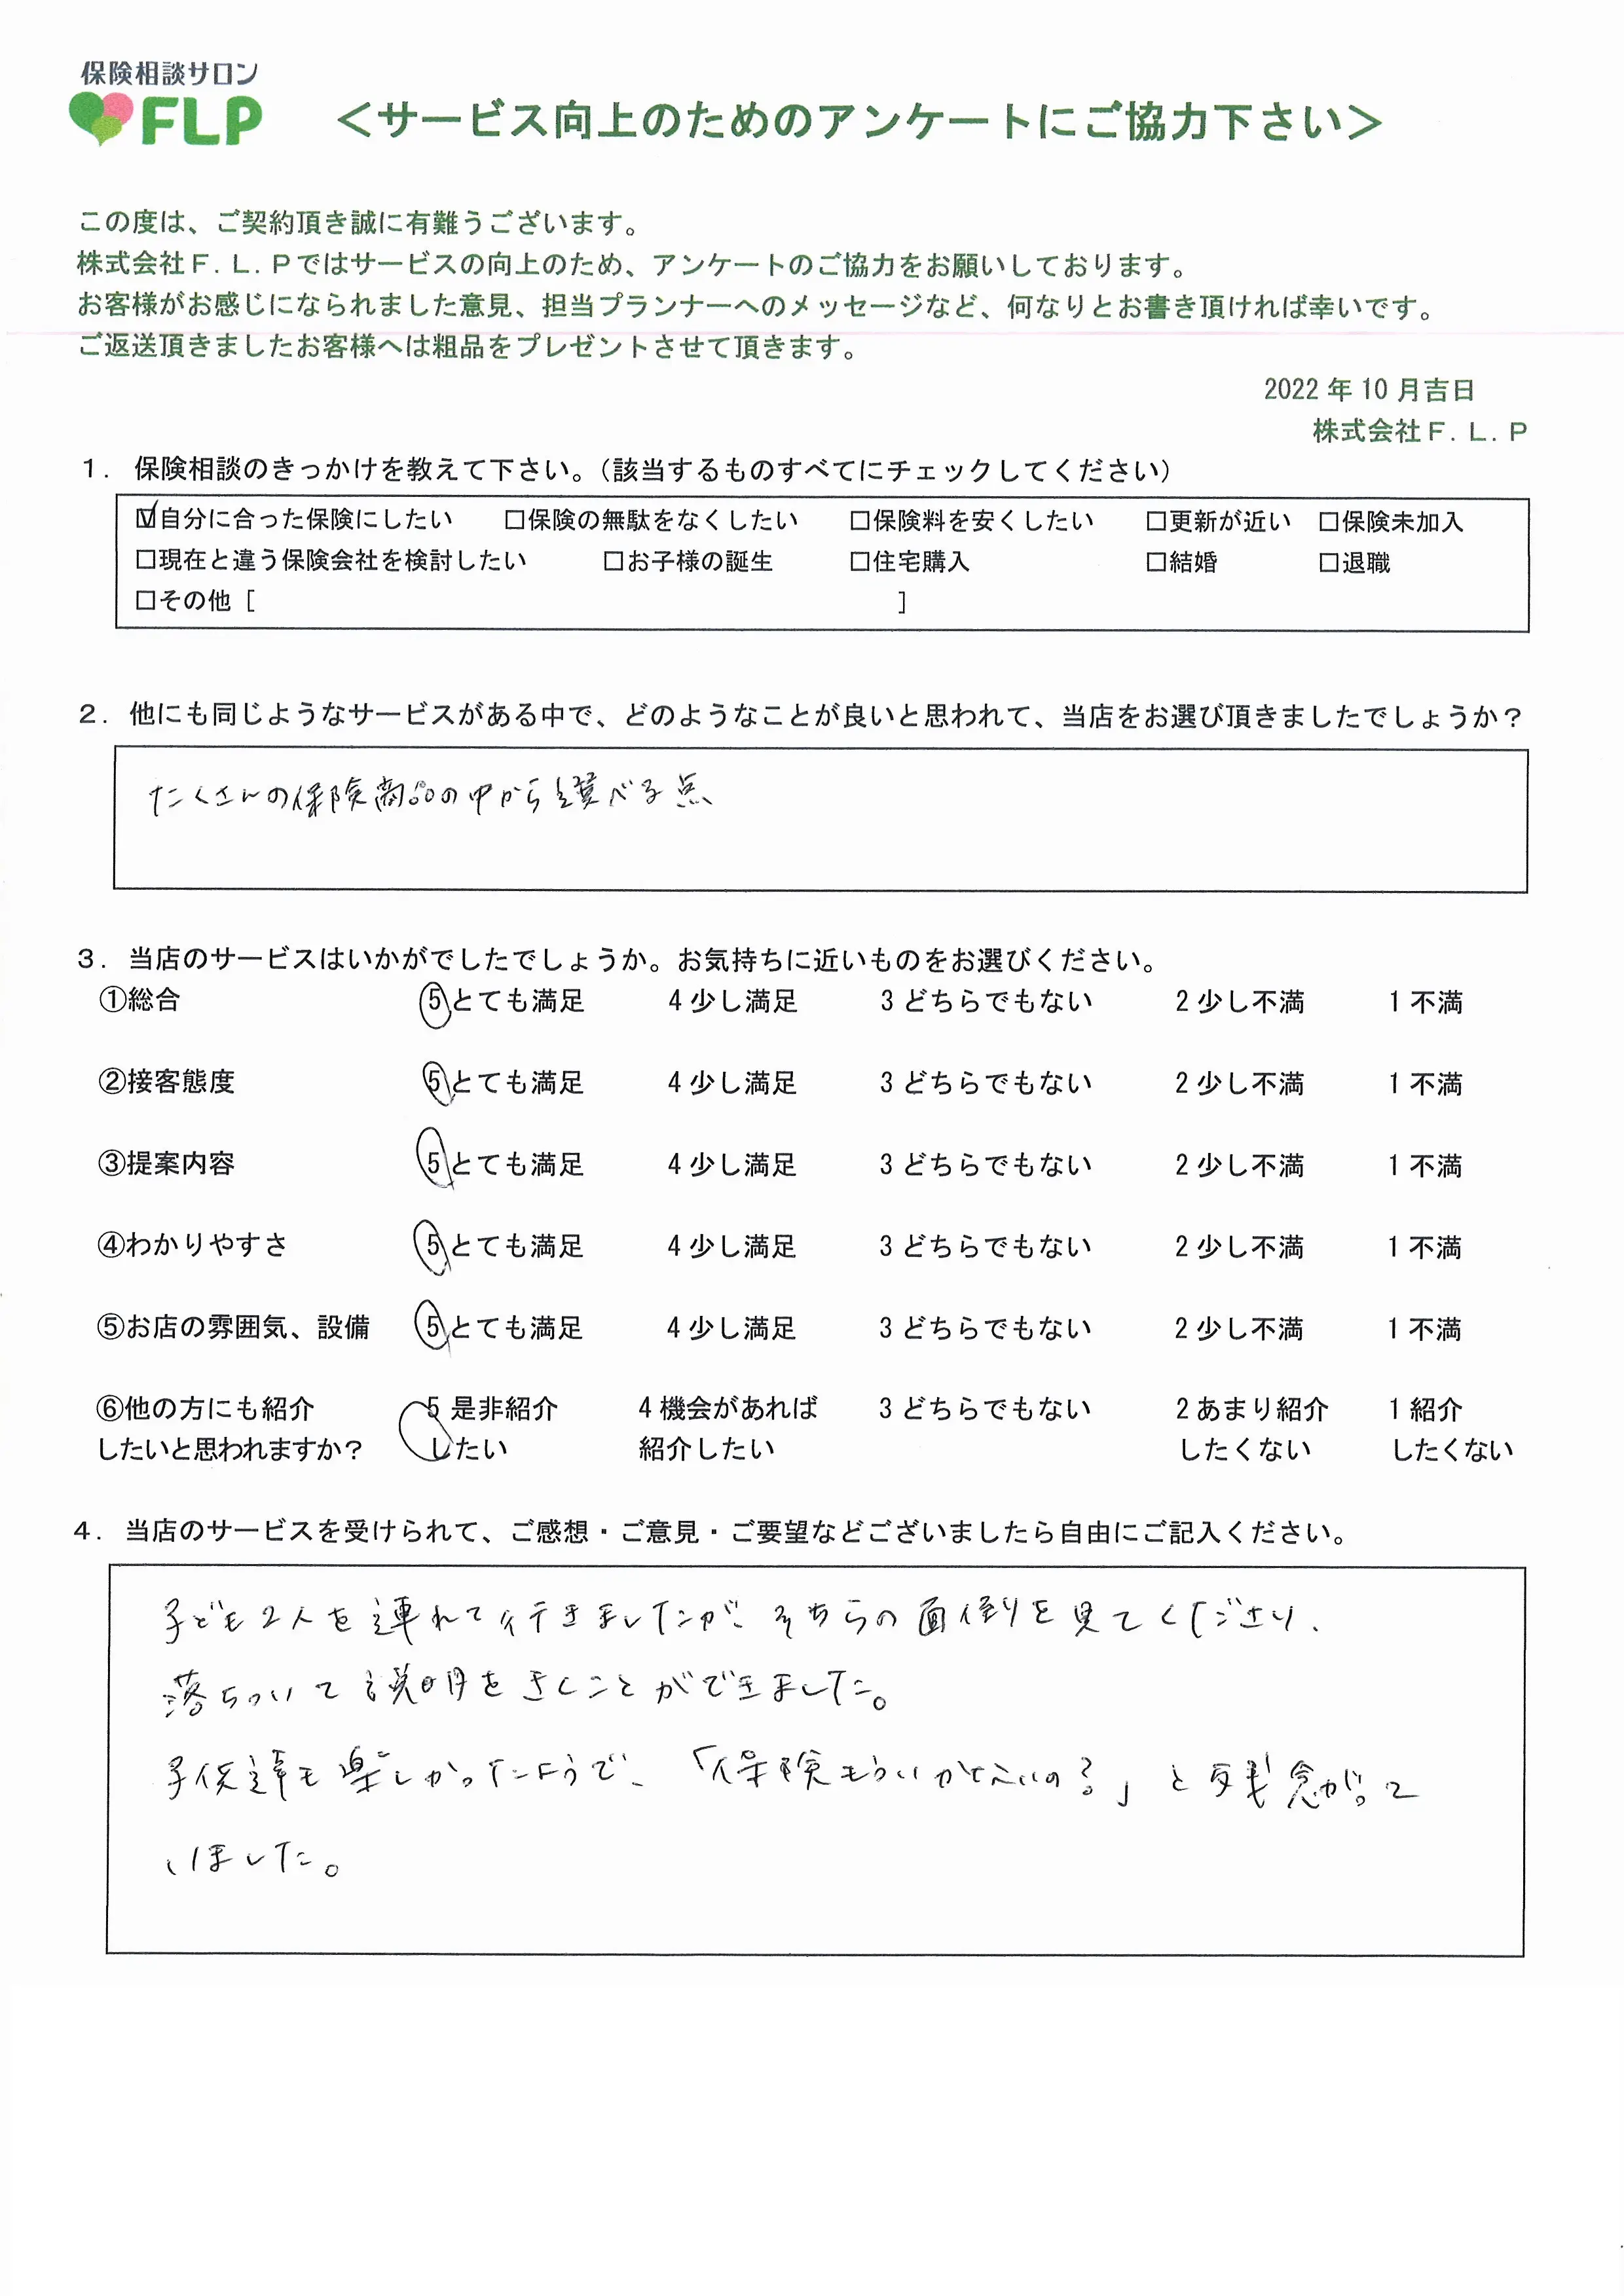 保険相談サロン
FLP
＜サービス向上のためのアンケートにご協力下さい＞
この度は、ご契約頂き誠に有難うございます。
株式会社Ｆ．Ｌ．Ｐではサービスの向上のため、アンケートのご協力をお願いしております。
お客様がお感じになられました意見、担当プランナーへのメッセージなど、何なりとお書き頂ければ幸いです。
ご返送頂きましたお客様へは粗品をプレゼントさせて頂きます。
2022 年 10 月吉日
株式会社Ｆ．Ｌ．Ｐ
１．保険相談のきっかけを教えて下さい。（該当するものすべてにチェックしてください）
☑自分に合った保険にしたい □保険の無駄をなくしたい □保険料を安くしたい □更新が近い □保険未加入
□現在と違う保険会社を検討したい □お子様の誕生 □住宅購入 □結婚 □退職
□その他［ ］
２．他にも同じようなサービスがある中で、どのようなことが良いと思われて、当店をお選び頂きましたでしょうか？
たくさんの保険商品の中から選べる点
３．当店のサービスはいかがでしたでしょうか。お気持ちに近いものをお選びください。
①総合 5 とても満足 4 少し満足 3 どちらでもない 2 少し不満 1 不満
②接客態度 5 とても満足 4 少し満足 3 どちらでもない 2 少し不満 1 不満
③提案内容 5 とても満足 4 少し満足 3 どちらでもない 2 少し不満 1 不満
④わかりやすさ 5 とても満足 4 少し満足 3 どちらでもない 2 少し不満 1 不満
⑤お店の雰囲気、設備 5 とても満足 4 少し満足 3 どちらでもない 2 少し不満 1 不満
⑥他の方にも紹介 5 是非紹介 4 機会があれば 3 どちらでもない 2 あまり紹介 1 紹介
したいと思われますか？ したい 紹介したい したくない したくない
４．当店のサービスを受けられて、ご感想・ご意見・ご要望などございましたら自由にご記入ください。
子ども2人を連れて行きましたが、そちらの面倒を見てくださり、
落ちついて説明をきくことができました。
子供達も楽しかったようで、「保険もういかないの？」と残念がって
いました。